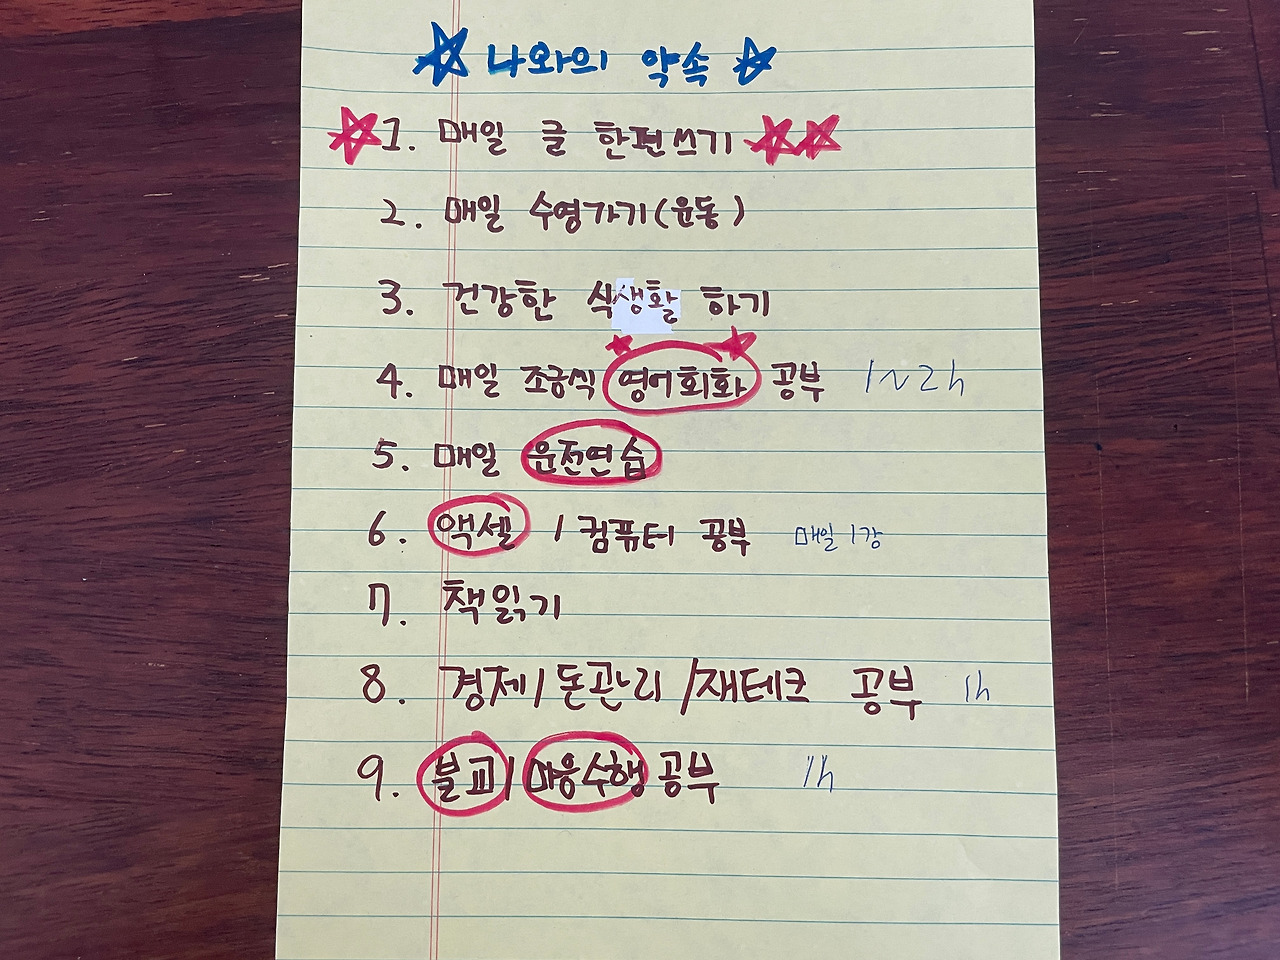 나와의 약속
1. 매일 글 한편쓰기
2. 매일 수영가기(운동)
3. 건강한 식생활 하기
4. 매일 조금씩 영어회화 공부 1~2h
5. 매일 운전연습
6. 액셀 / 컴퓨터 공부 매일 1강
7. 책읽기
8. 경제/돈관리/재테크 공부 1h
9. 불교/마음수행 공부 1h